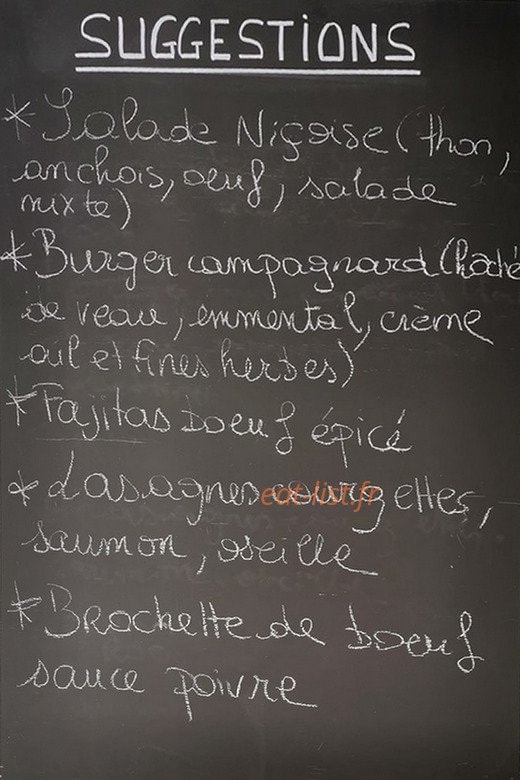 SUGGESTIONS
* Salade Niçoise (thon,
anchois, oeuf, salade
mixte)
* Burger campagnard (hâché
de veau, emmental, crème
ail et fines herbes)
* Fajitas boeuf épicé
* Lasagnes courgettes,
eat-list.fr
saumon, oseille
* Brochette de boeuf
sauce poivre